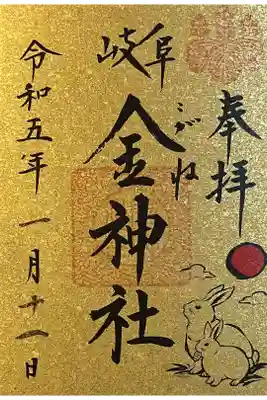 奉拝
岐阜
こがね
金神社
令和五年 一月十一日